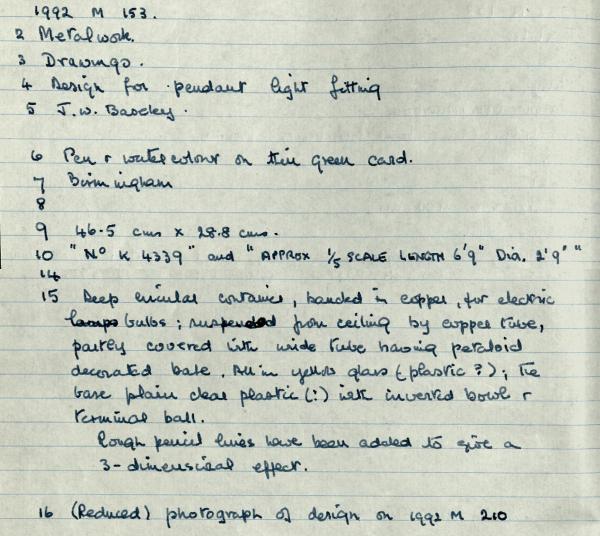 1992 M 153.
2 Metalwork.
3 Drawings.
4 Design for pendant light fitting
5 J.W. Baseley.
6 Pen & watercolour on thin green card.
7 Birmingham
8
9 46.5 cms x 28.8 cms.
10 "No K 4339" and "APPROX 1/5 SCALE LENGTH 6'9" Dia. 2'9""
14
15 Deep circular container, banded in copper, for electric
lamps bulbs; suspended from ceiling by copper tube,
partly covered with wide tube having petaloid
decorated base. All in yellow glass (plastic?); the
base plain clear plastic (:) with inverted bowl &
terminal ball.
Rough pencil lines have been added to give a
3-dimensional effect.
16 (Reduced) photograph of design on 1992 M 210